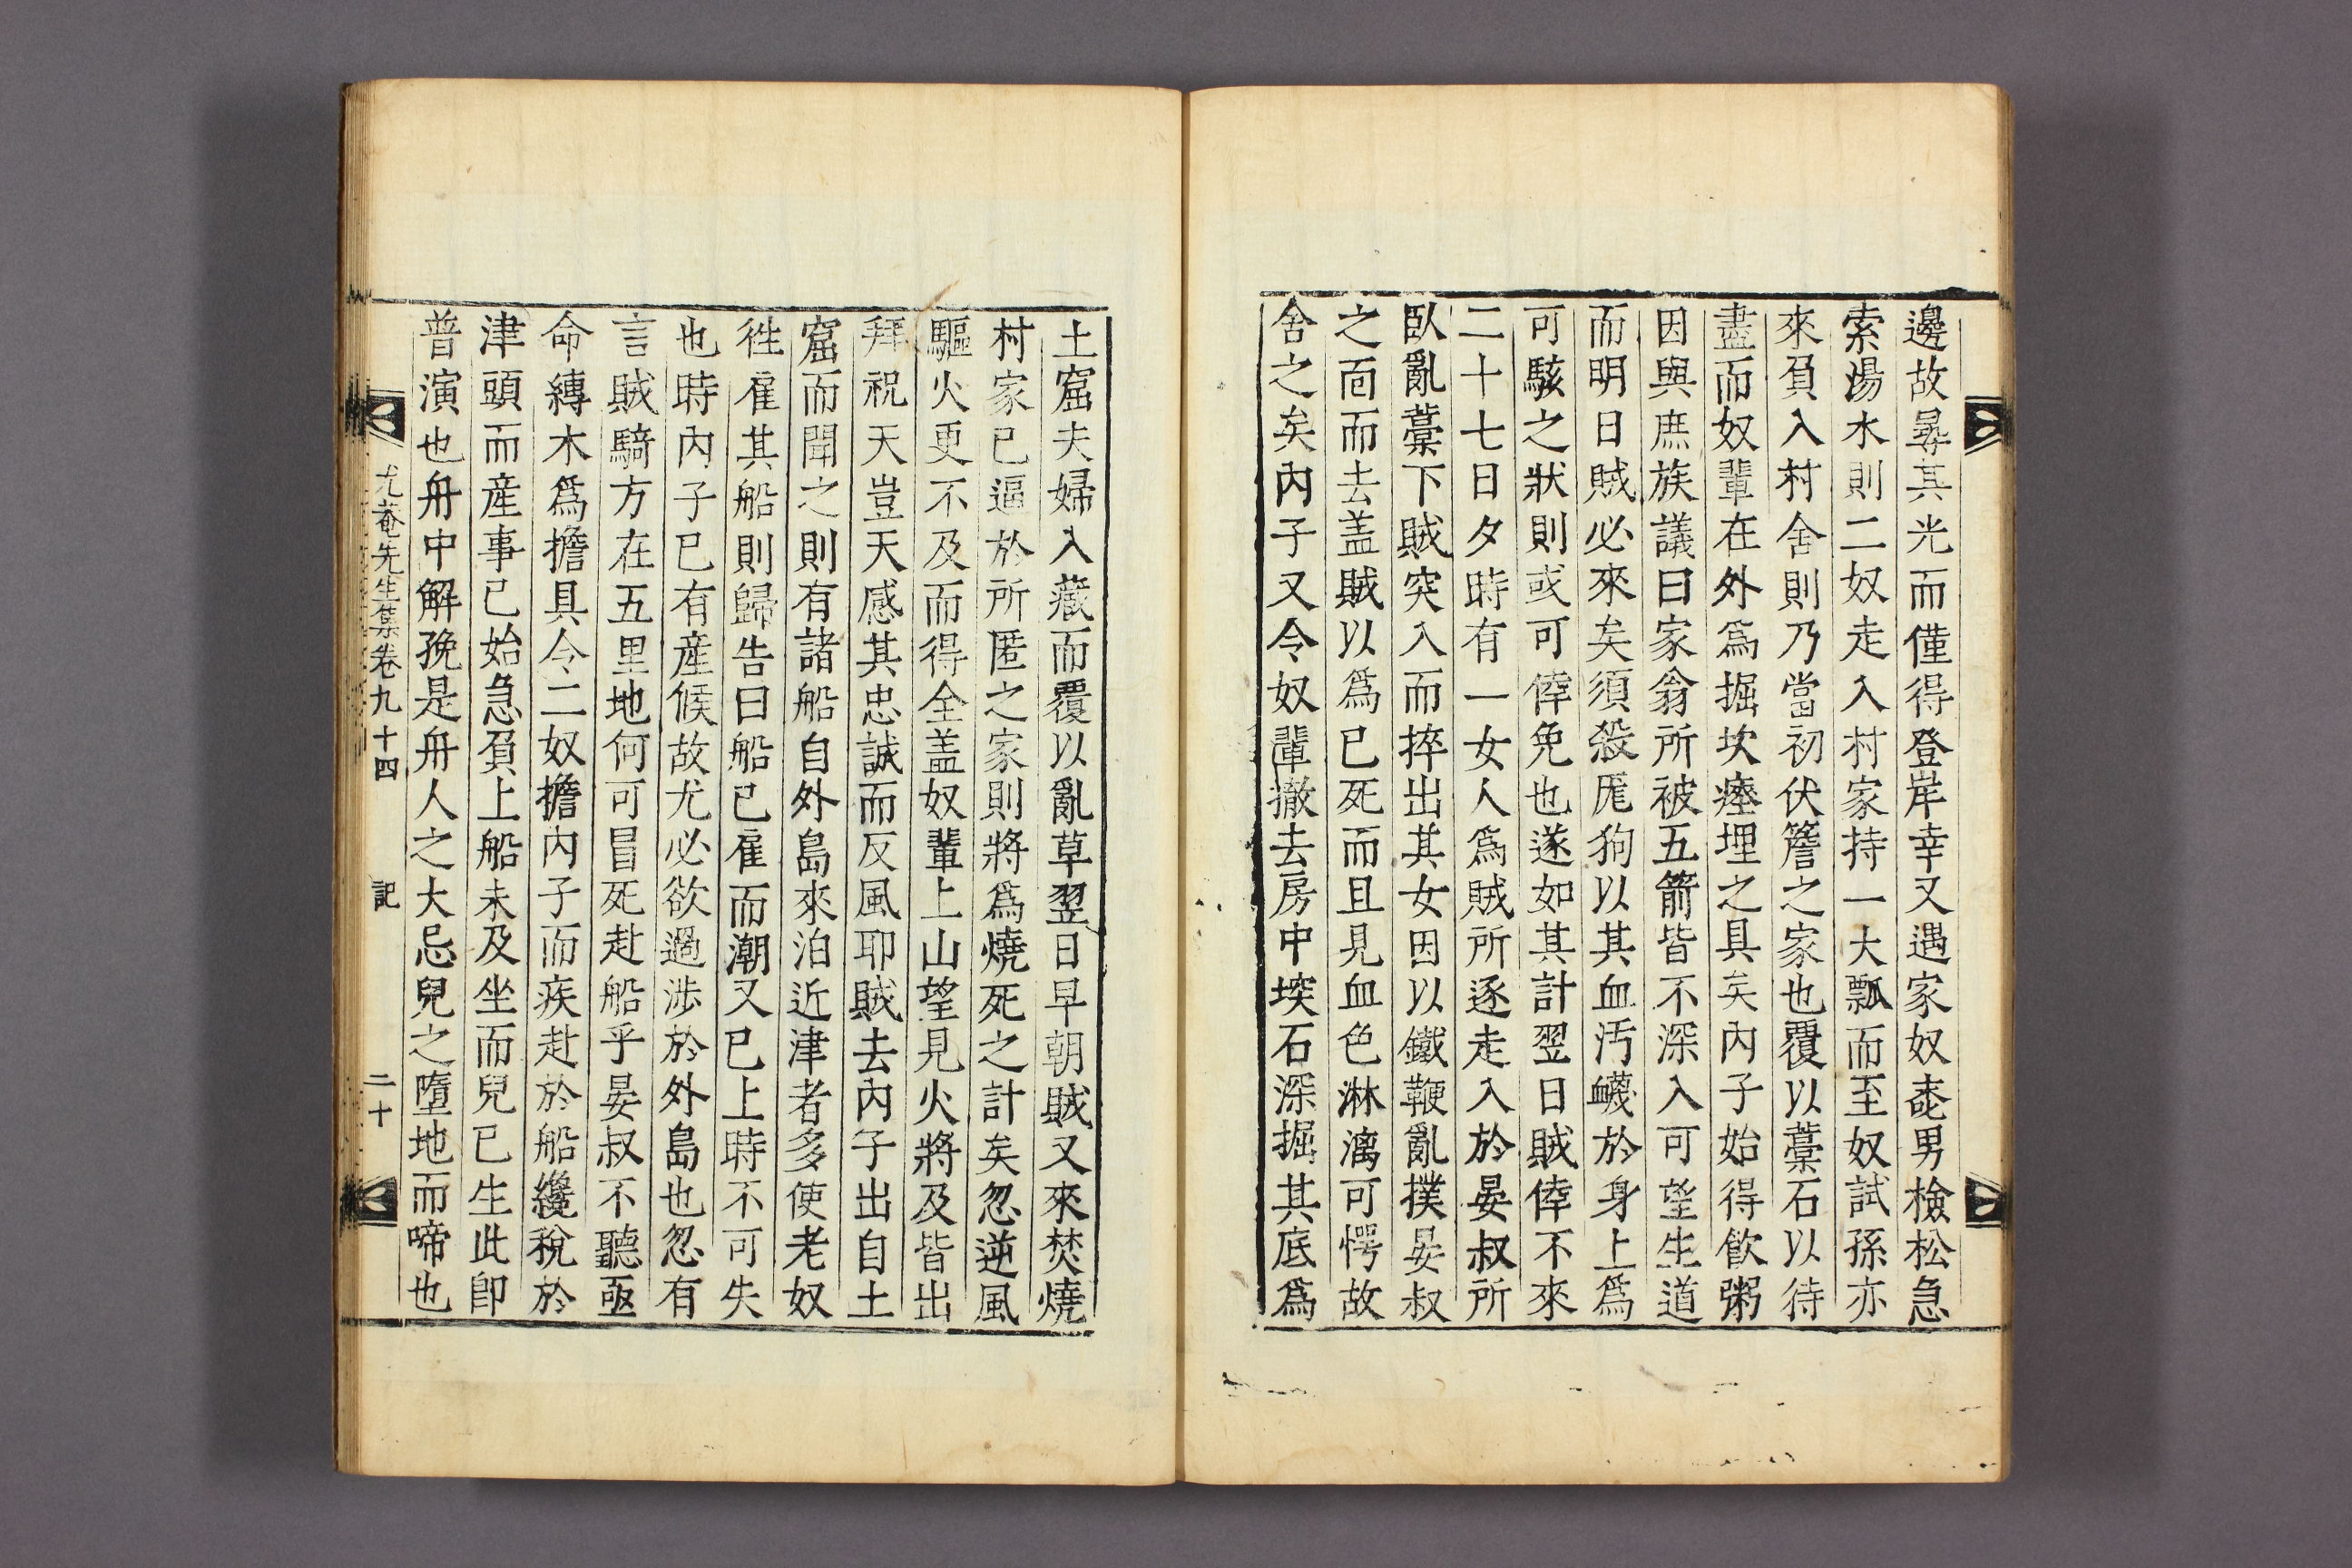 邊故尋其光而僅得登岸幸又遇家奴唜男檢松急
索湯水則二奴走入村家持一大瓢而至奴試孫亦
來負入村舍則乃當初伏簷之家也覆以藁石以待
盡而奴輩在外爲掘坎瘞埋之具矣內子始得飮粥
因與庶族議曰家翁所被五箭皆不深入可望生道
而明日賊必來矣須殺厖狗以其血汚衊於身上爲
可駭之狀則或可倖免也遂如其計翌日賊倖不來
二十七日夕時有一女人爲賊所逐走入於晏叔所
臥亂藁下賊突入而捽出其女因以鐵鞭亂撲晏叔
之面而去盖賊以爲已死而且見血色淋漓可愕故
舍之矣內子又令奴輩撤去房中堗石深掘其底爲
土窟夫婦入藏而覆以亂草翌日早朝賊又來焚燒
村家已逼於所匿之家則將爲燒死之計矣忽逆風
驅火更不及而得全盖奴輩上山望見火將及皆出
拜祝天豈天感其忠誠而反風耶賊去內子出自土
窟而聞之則有諸船自外島來泊近津者多使老奴
徃雇其船則歸告曰船已雇而潮又已上時不可失
也時內子已有産候故尤必欲過涉於外島也忽有
言賊騎方在五里地何可冒死赴船乎晏叔不聽亟
命縳木爲擔具令二奴擔內子而疾赴於船纔稅於
津頭而産事已始急負上船未及坐而兒已生此卽
普演也舟中解娩是舟人之大忌兒之墮地而啼也
尤菴先生集卷九十四 記 二十